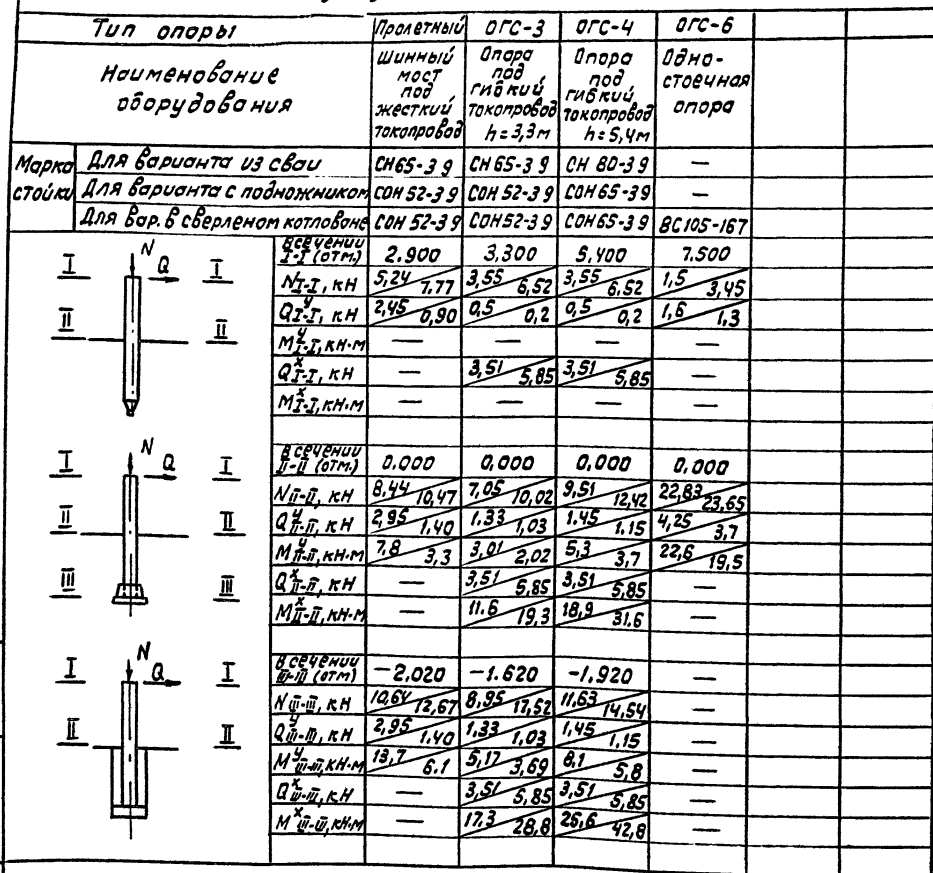 Тип опоры Пролетный ОГС-3 ОГС-4 ОГС-6
Наименование оборудования Шинный мост под жесткий токопровод Опора под гибкий токопровод h=3,3м Опора под гибкий токопровод h=5,4м Одно-стоечная опора
Марка стойки
Для варианта из сваи СН65-39 СН65-39 СН 80-39 —
Для варианта с подножником СОН 52-39 СОН 52-39 СОН 65-39 —
Для вар. в сверленом котловане СОН 52-39 СОН 52-39 СОН 65-39 ВС105-167
В сечении I-I (отм.) 2.900 3,300 5,400 7.500
N I-I, кН 5,24 / 7.77 3,55 / 6,52 3,55 / 6.52 1,5 / 3,45
Q^y I-I, кН 2,45 / 0,90 0,5 / 0,2 0,5 / 0,2 1,6 / 1,3
M^y I-I, кН·м — — — —
Q^x I-I, кН — 3,51 / 5,85 3,51 / 5,85 —
M^x I-I, кН·м — — — —
В сечении II-II (отм.) 0.000 0,000 0.000 0,000
N II-II, кН 8,44 / 10,47 7,05 / 10,02 9,51 / 12,42 22,83 / 23,65
Q^y II-II, кН 2,95 / 1.40 1.33 / 1,03 1.45 / 1.15 4,25 / 3,7
M^y II-II, кН·м 7,8 / 3,3 3,01 / 2,02 5,3 / 3,7 22,6 / 19,5
Q^x II-II, кН — 3,51 / 5,85 3,51 / 5,85 —
M^x II-II, кН·м — 11.6 / 19,3 18,9 / 31.6 —
В сечении III-III (отм) -2,020 -1.620 -1,920 —
N III-III, кН 10,64 / 12,67 8,95 / 17,52 11,63 / 14,54 —
Q^y III-III, кН 2,95 / 1.40 1,33 / 1,03 1,45 / 1,15 —
M^y III-III, кН·м 13,7 / 6.1 5,17 / 3,69 8,1 / 5,8 —
Q^x III-III, кН — 3,51 / 5,85 3,51 / 5,85 —
M^x III-III, кН·м — 17,3 / 28,8 26,6 / 42,8 —
N
I Q I
II II
N
I Q I
II II
III III
N
I Q I
II II